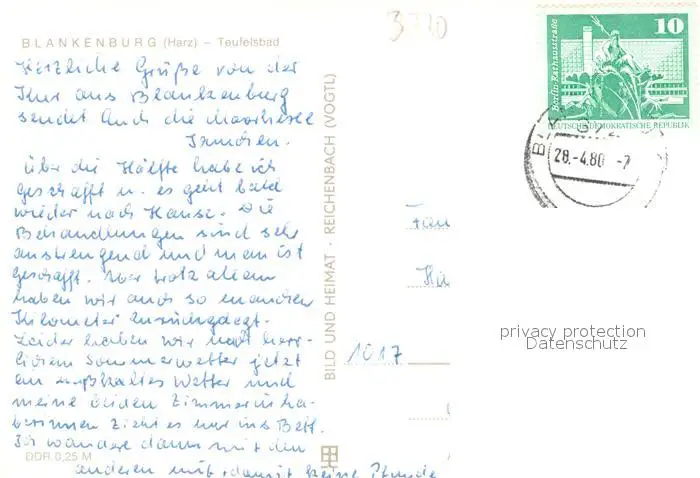 3770
BLANKENBURG (Harz) – Teufelsbad
Herzliche Grüße von der
Kur aus Blankenburg
sendet Euch die
über die Hälfte habe ich
geschafft u. es geht bald
wieder nach Hause. Die
Behandlungen sind sehr
anstrengend und man ist
geschafft. Aber trotz allem
haben wir auch so manchen
Kilometer zurückgelegt.
Leider haben wir nach herr-
lichem Sommerwetter jetzt
ein naßkaltes Wetter und
meine beiden Zimmerinha-
berinnen zieht es nur ins Bett.
Ich wandere dann mit den
anderen mit, damit keine Stunde
DDR 0,25 M
BILD UND HEIMAT · REICHENBACH (VOGTL)
10
Berlin-Rathausstraße
DEUTSCHE DEMOKRATISCHE REPUBLIK
28.-4.80 -7
Fam
1017
privacy protection
Datenschutz